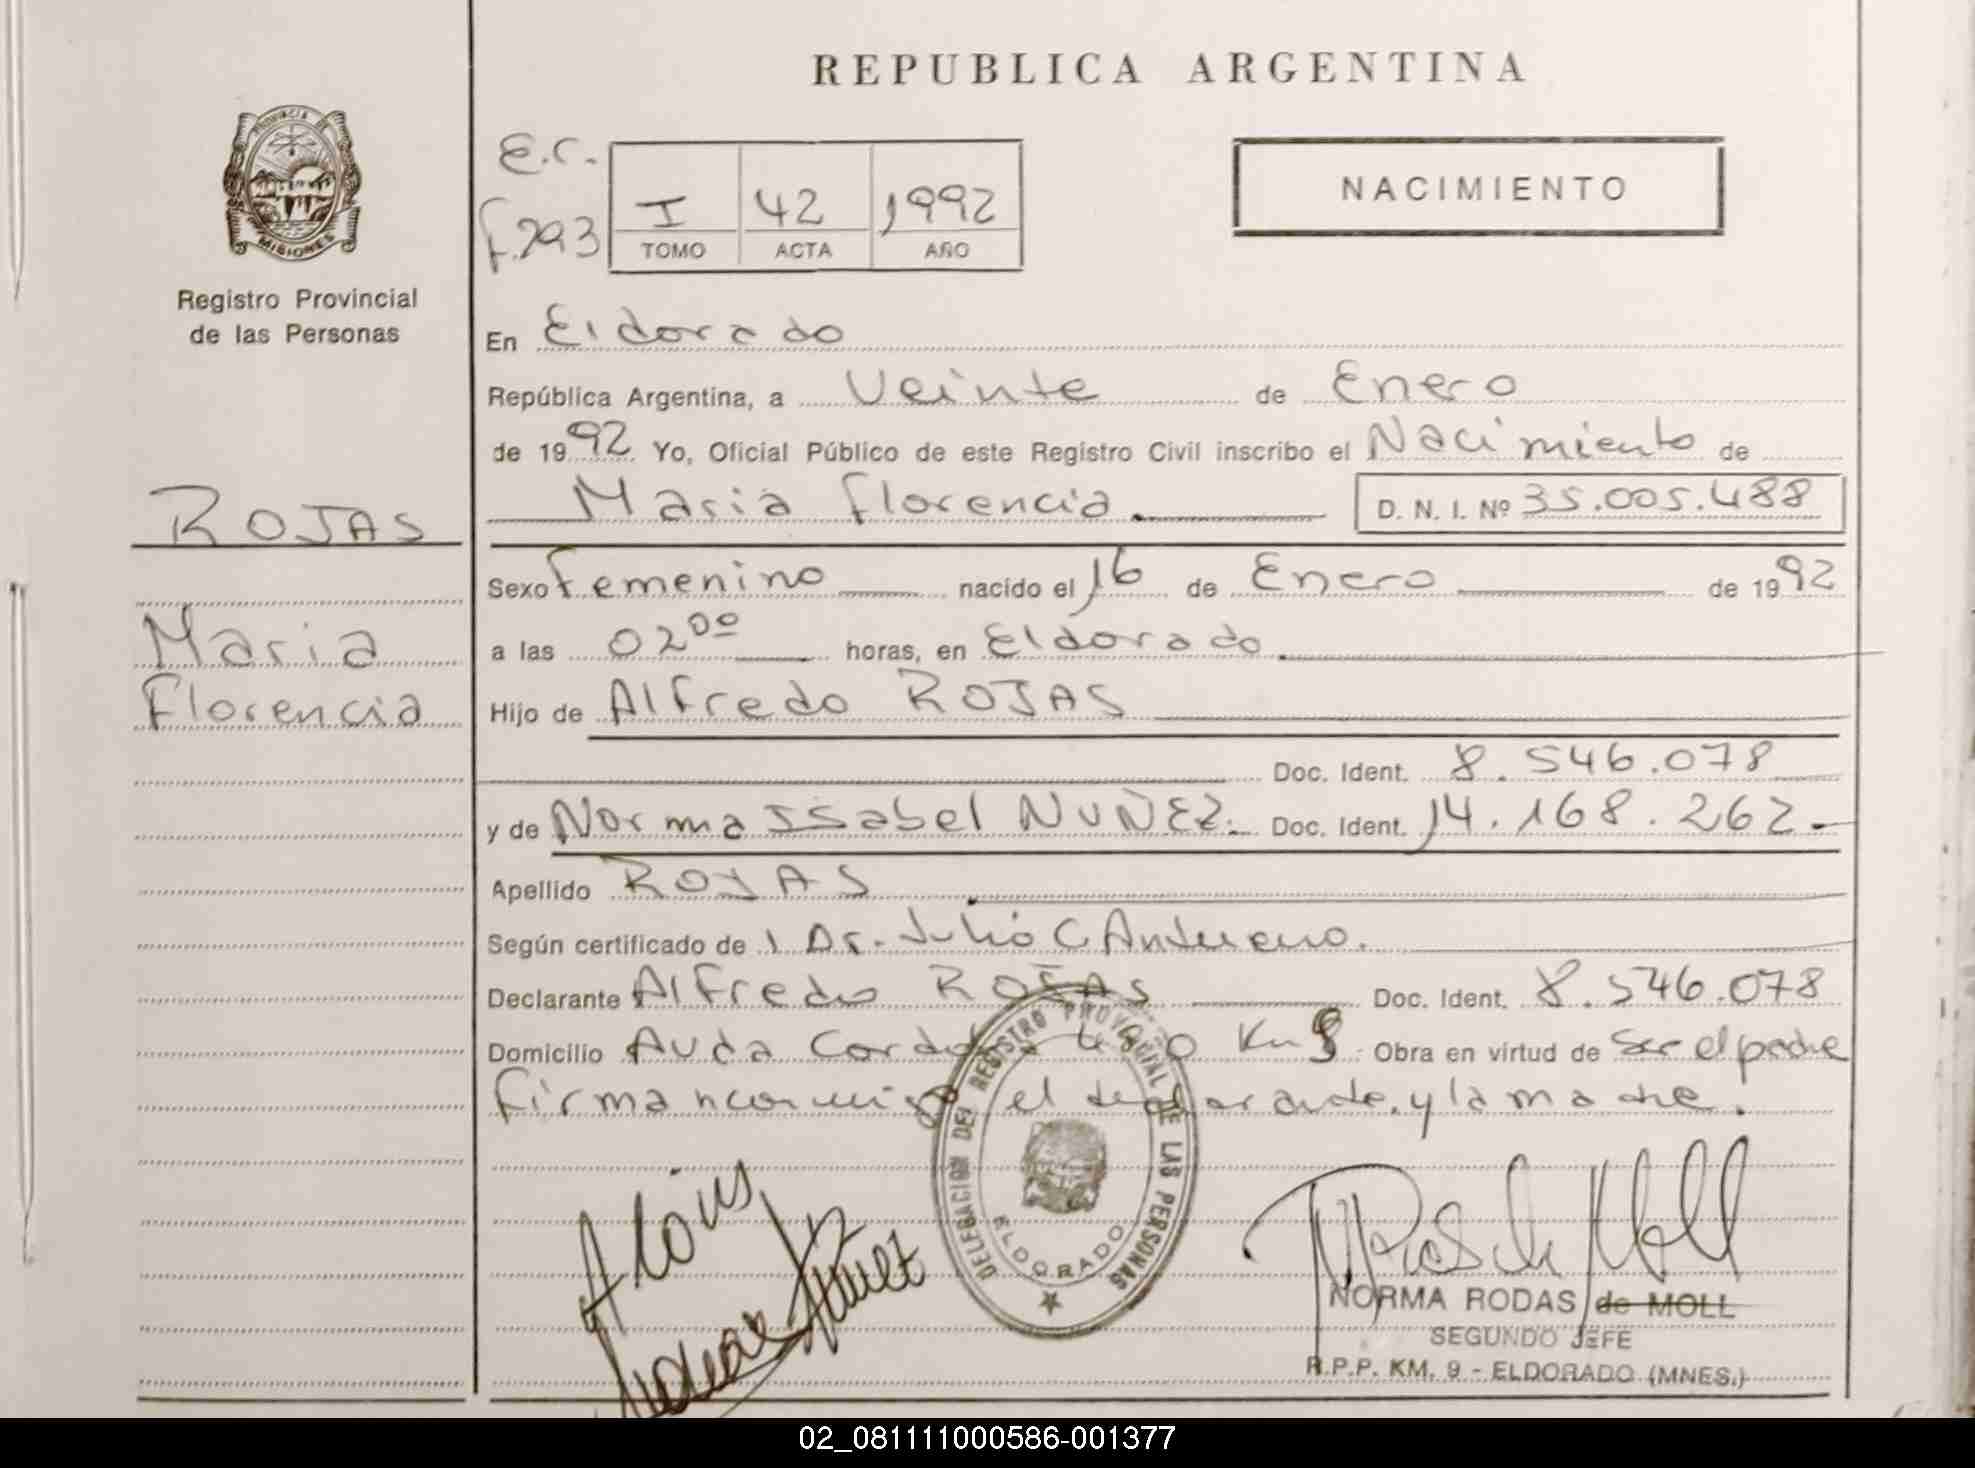 REPUBLICA ARGENTINA
PROVINCIA DE
MISIONES
Registro Provincial
de las Personas
E.C.
F.293
I 42 1992
TOMO ACTA AÑO
NACIMIENTO
En Eldorado
República Argentina, a Veinte de Enero
de 1992 Yo, Oficial Público de este Registro Civil inscribo el Nacimiento de
Maria Florencia D. N. I. Nº 35.005.488
ROJAS
Maria
Florencia
Sexo Femenino nacido el 16 de Enero de 1992
a las 02 00 horas, en Eldorado
Hijo de Alfredo ROJAS
Doc. Ident. 8.546.078
y de Norma ISabel NUÑEZ Doc. Ident. 14.168.262
Apellido ROJAS
Según certificado de Dr. Julio C
Declarante Alfredo ROJAS Doc. Ident. 8.546.078
Domicilio Avda Km Obra en virtud de Ser el padre
Firman conmigo el declarante, y la madre.
DELEGACION DEL REGISTRO PROVINCIAL DE LAS PERSONAS
ELDORADO
NORMA RODAS de MOLL
SEGUNDO JEFE
R.P.P. KM. 9 - ELDORADO (MNES.)
02_081111000586-001377